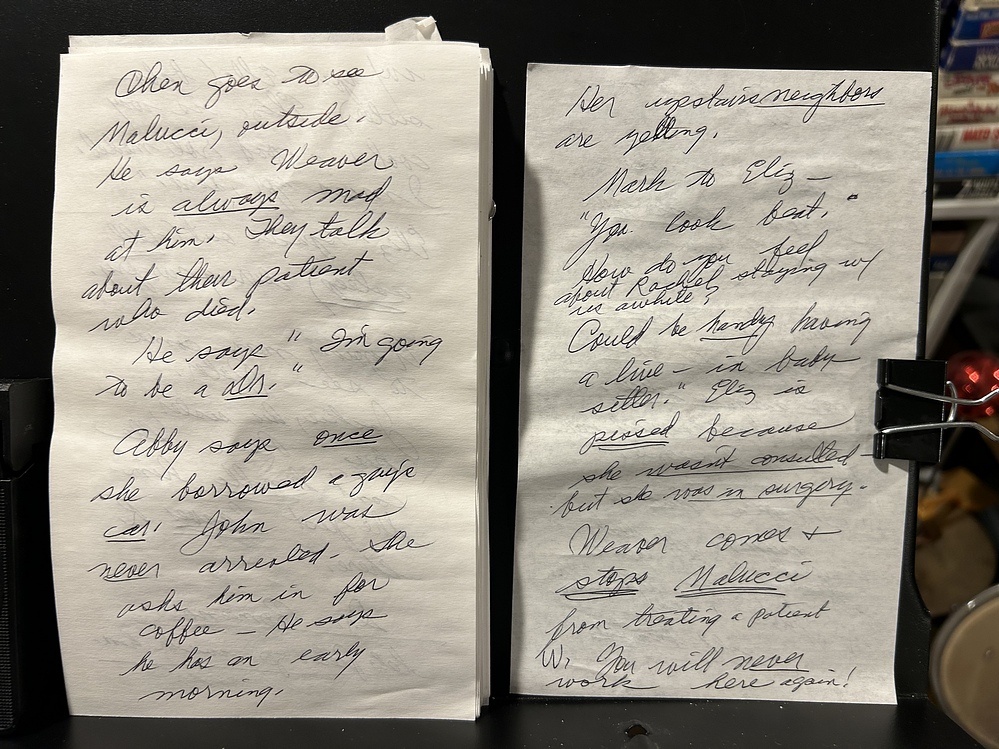 Chen goes to see
Malucci, outside.
He says Weaver
is always mad
at him. They talk
about their patient
who died.
He says "I'm going
to be a ddr."
Abby says once
she borrowed a guy's
car. John was
never arrested. She
asks him in for
coffee – He says
he has an early
morning.
Her upstairs neighbors
are yelling.
Mark to Eliz –
"You look beat."
How do you feel
about Rachel staying w/
us awhile?
Could be handy having
a live-in baby
sitter." Eliz is
pissed because
she wasn't consulted –
but she was in surgery.
Weaver comes +
stops Malucci
from treating a patient
W. You will never
work here again!